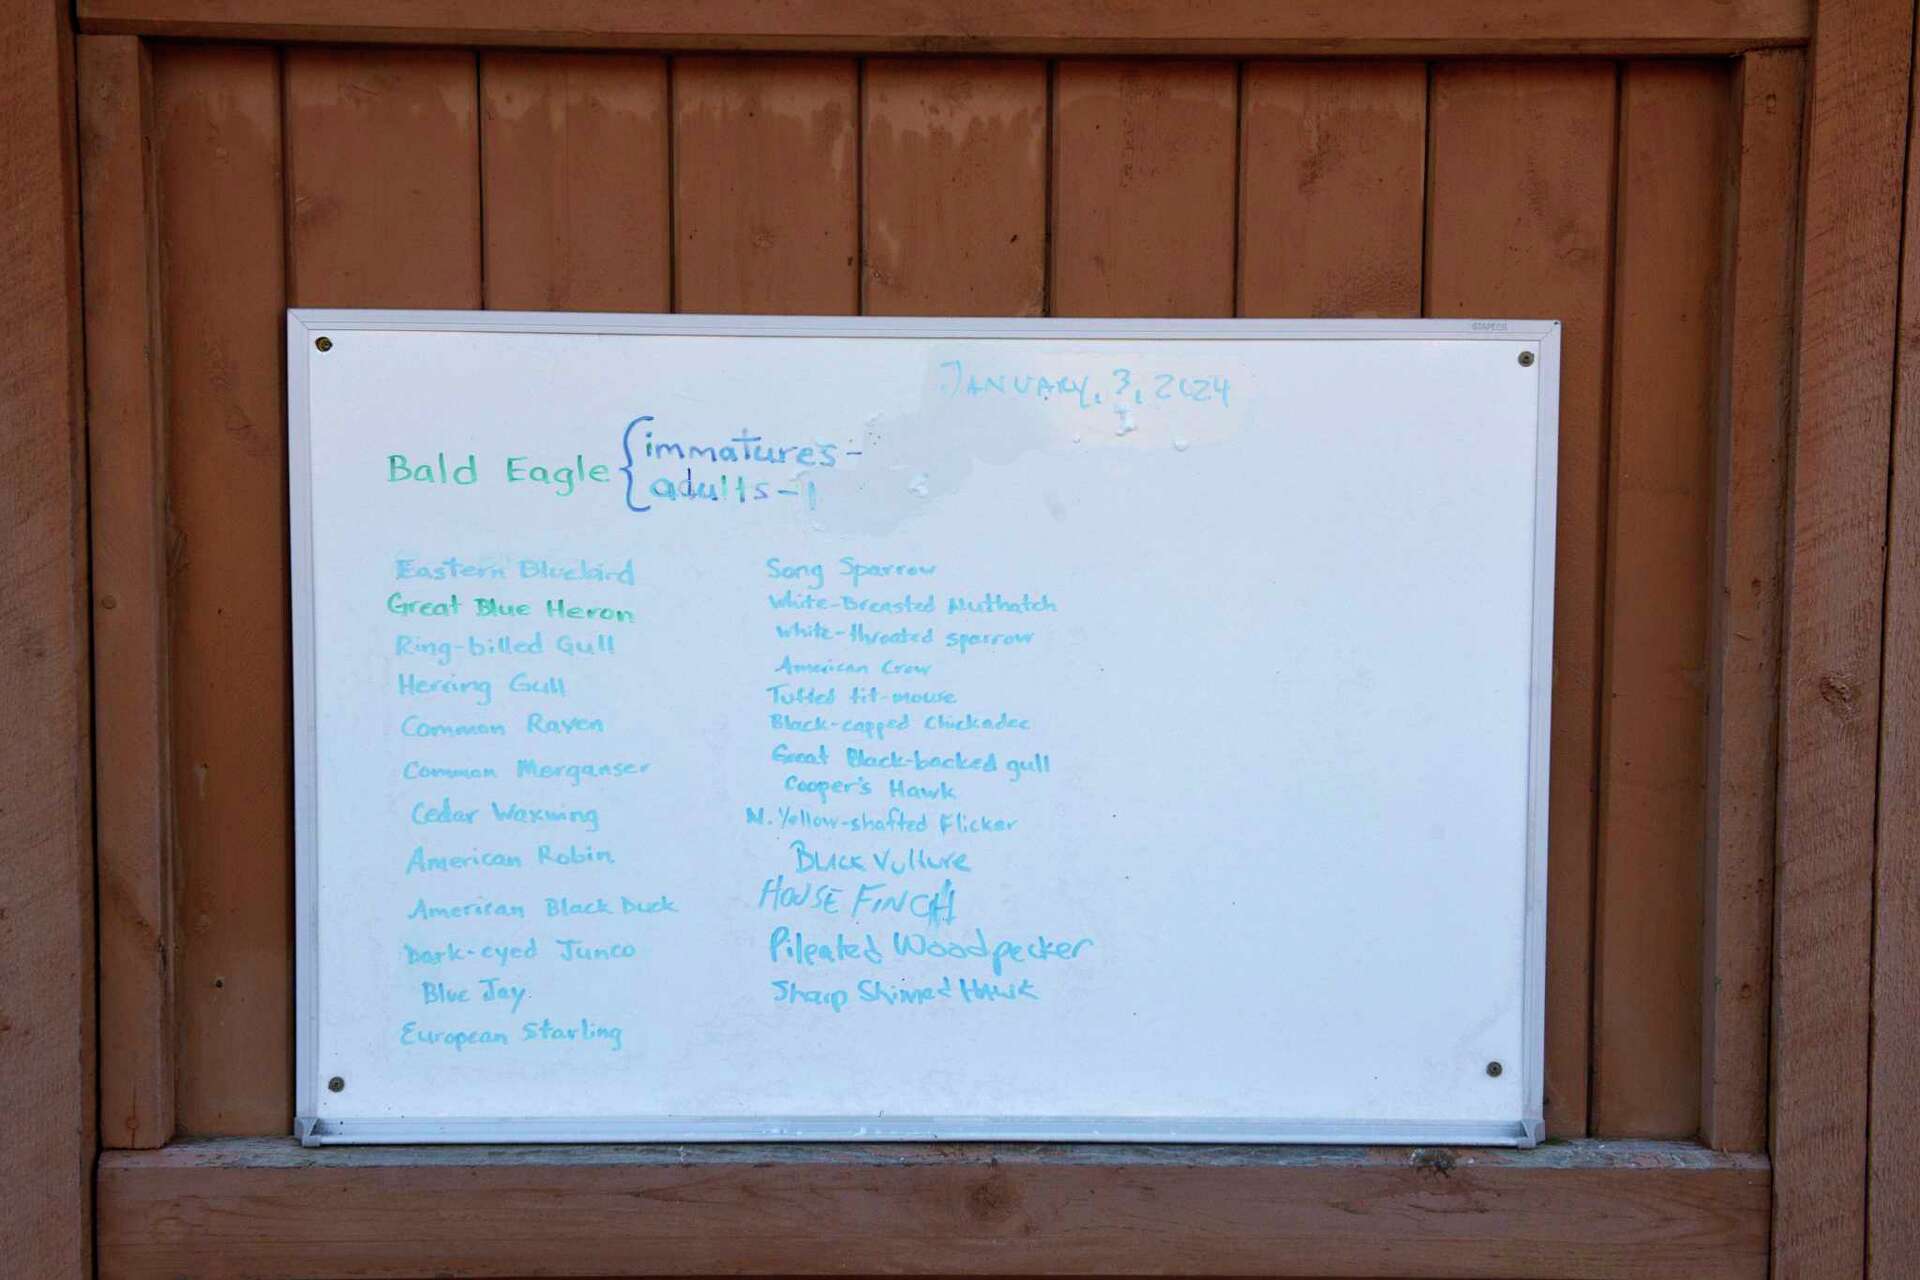 STAPLES
JANUARY, 3, 2024
Bald Eagle { immatures -
adults - 1
Eastern Bluebird
Great Blue Heron
Ring-billed Gull
Herring Gull
Common Raven
Common Merganser
Cedar Waxwing
American Robin
American Black Duck
Dark-eyed Junco
Blue Jay
European Starling
Song Sparrow
White-Breasted Nuthatch
White-throated sparrow
American Crow
Tufted tit-mouse
Black-capped Chickadee
Great Black-backed gull
Cooper's Hawk
N. Yellow-shafted Flicker
BLACK Vulture
HOUSE FINCH
Pileated Woodpecker
Sharp Shinned Hawk